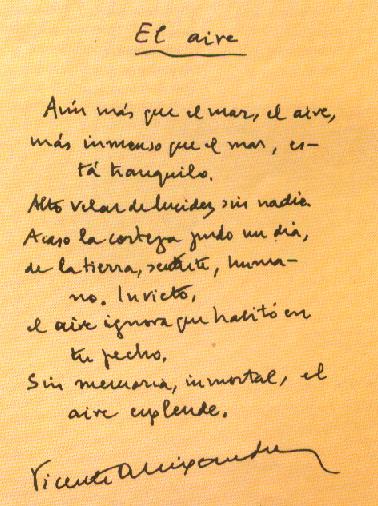 El aire
Aún más que el mar, el aire,
más inmenso que el mar, es-
tá tranquilo.
Alto velar de lucidez sin nadie.
Acaso la corteza pudo un día,
de la tierra, sentirte, huma-
no. Invicto,
el aire ignora que habitó en
tu pecho.
Sin memoria, inmortal, el
aire esplende.
Vicente Aleixandre